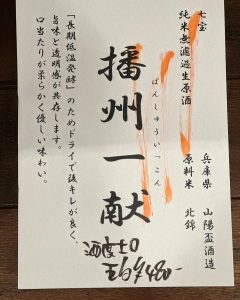 七宝
純米無濾過生原酒
兵庫県 山陽盃酒造
原料米 北錦
ばんしゅういっこん
播州一献
「長期低温発酵」のためドライで後キレが良く、
旨味と透明感が共存します。
口当たりが柔らかく優しい味わい。
酒度±0